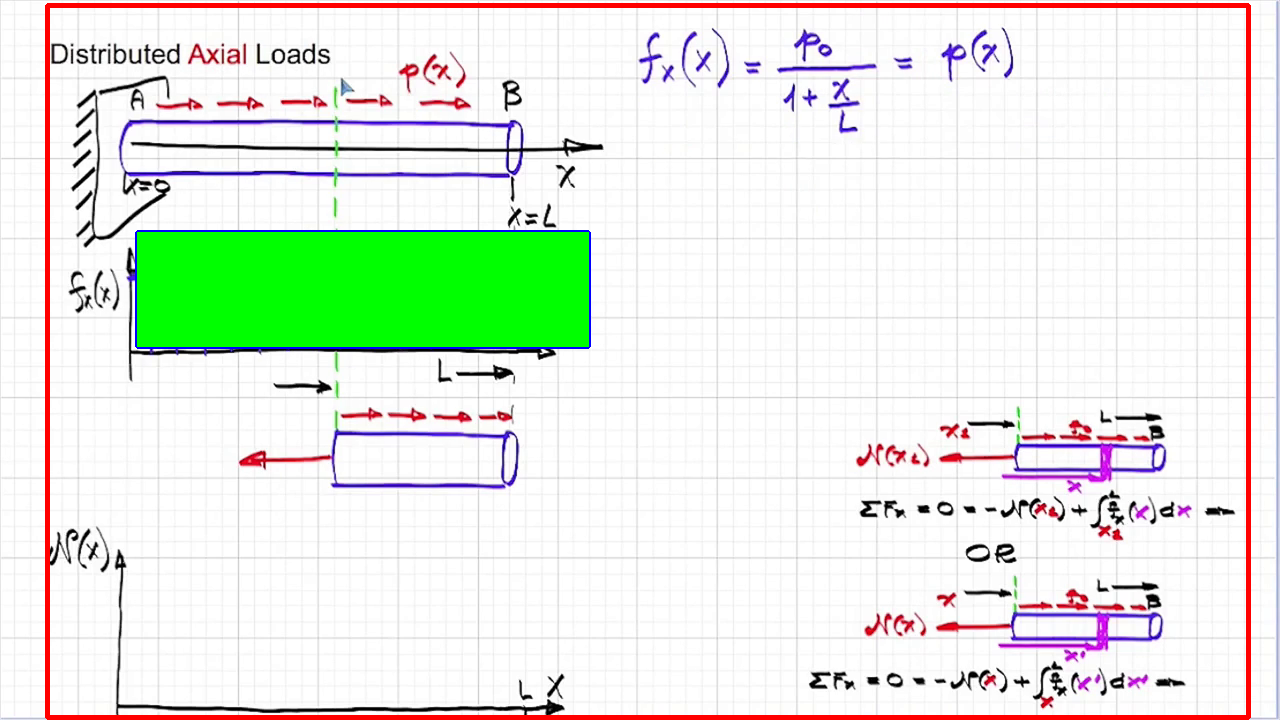 Distributed Axial Loads
fₓ(x) = p₀ / (1 + x/L) = p(x)
p(x)
A
B
x=0
X
x=L
fₓ(x)
L
x₁
L
B
N(x₁)
x
ΣFₓ = 0 = -N(x₁) + ∫ₓ₁ᴸ fₓ(x) dx
OR
x
L
B
N(x)
x'
ΣFₓ = 0 = -N(x) + ∫ₓᴸ fₓ(x') dx'
N(x)
L X